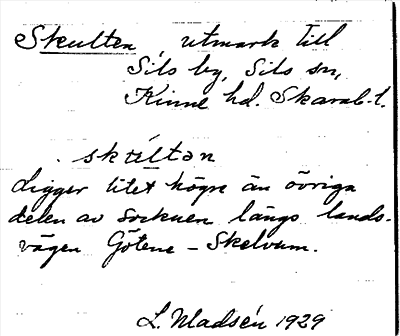 Skulten, utmark till
Sils by, Sils sn,
Kinne hd. Skarab.l.
skúltən
Ligger litet högre än övriga
delen av socknen längs lands-
vägen Götene - Skelvum.
L. Madsén 1929